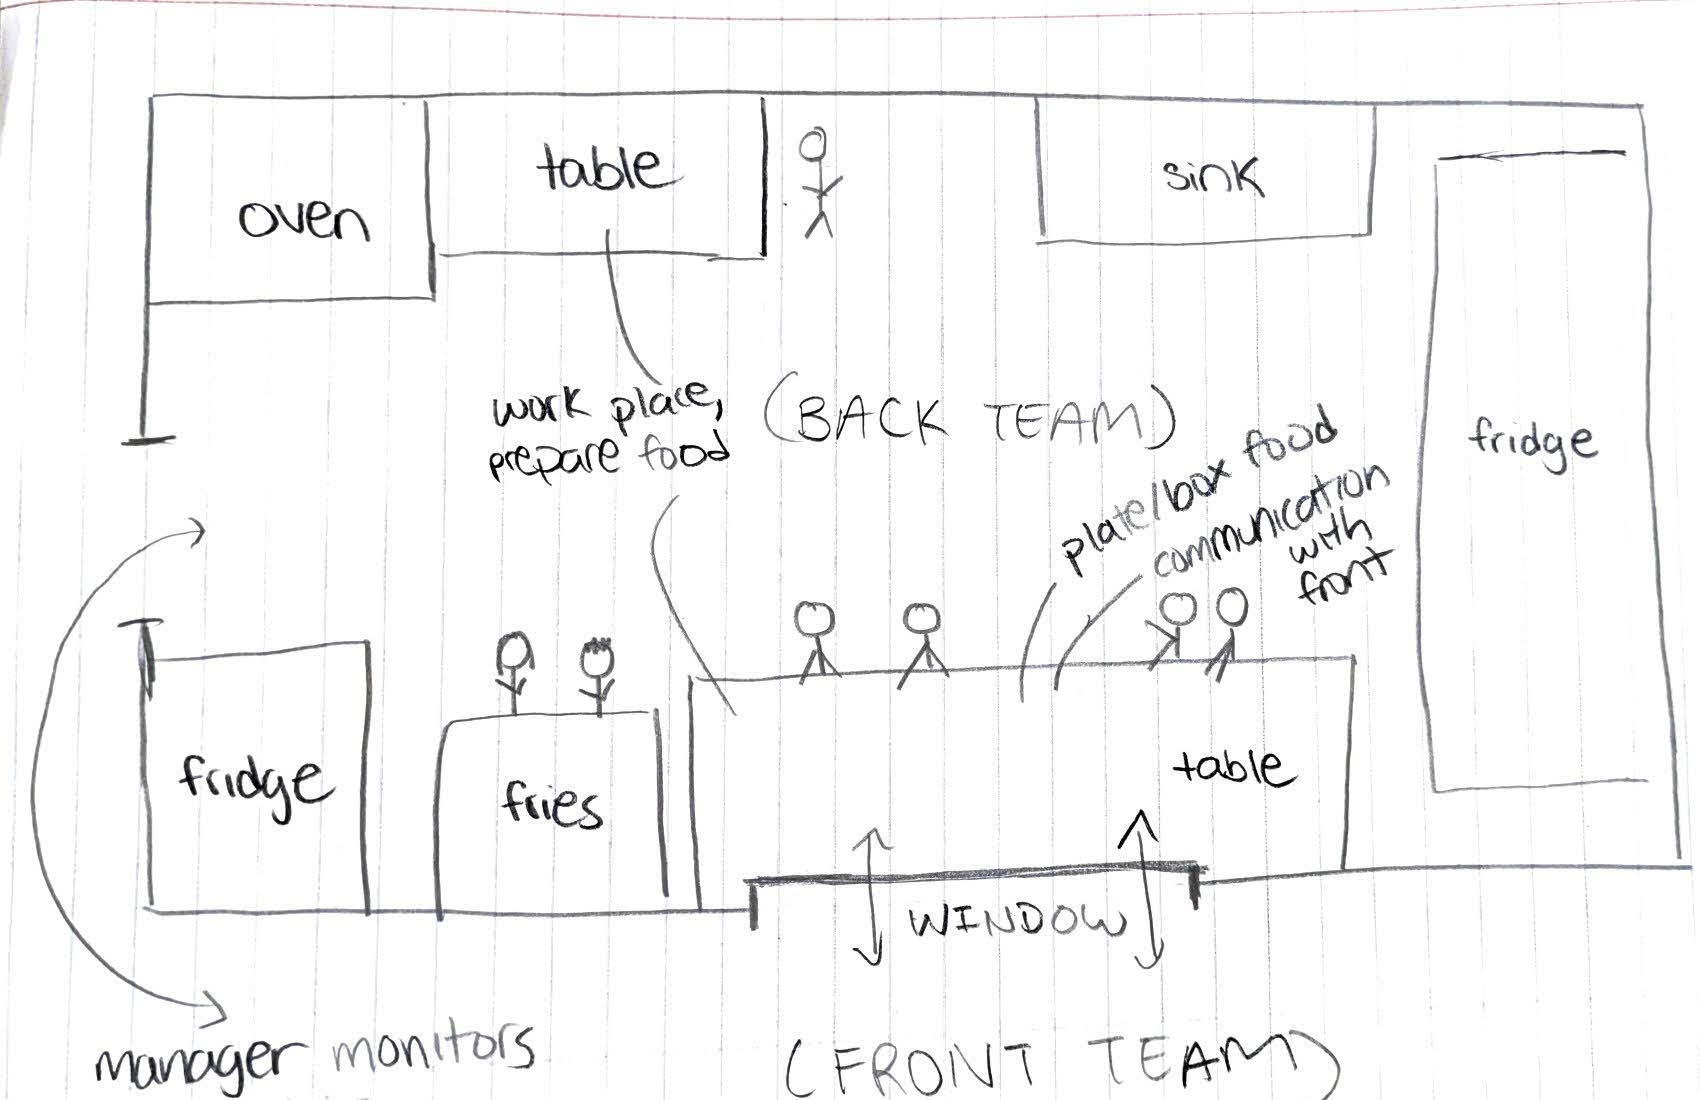 oven
table
sink
work place,
prepare food
(BACK TEAM)
plate/box food
communication
with
front
fridge
fridge
fries
table
WINDOW
manager monitors
(FRONT TEAM)